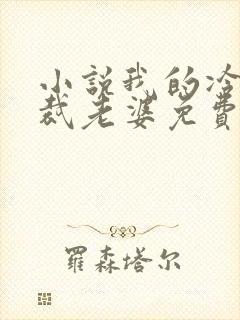 小説我的冷
裁老婆免費
羅森塔尔